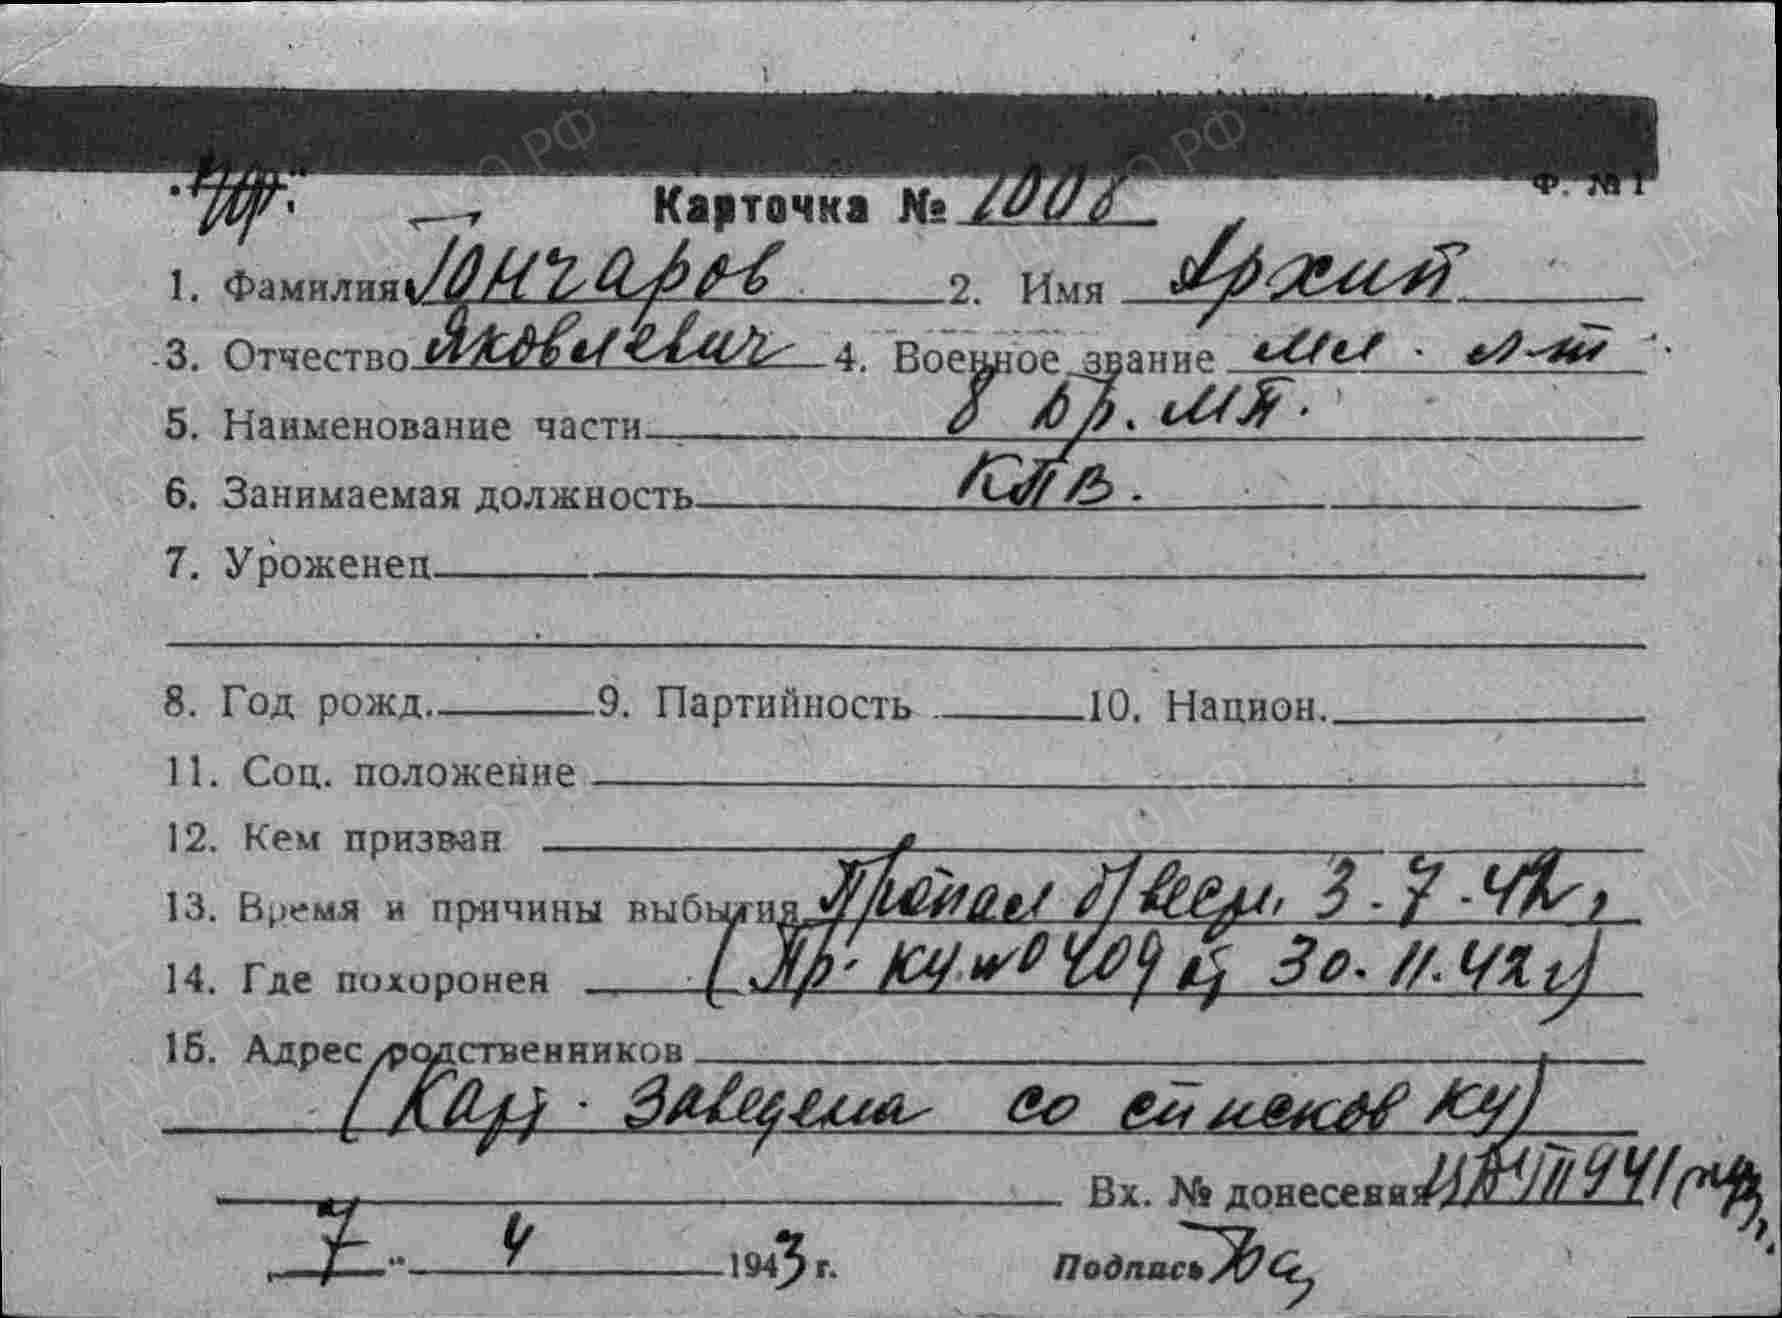 Ф. № 1
Карточка № 1008
1. Фамилия Гончаров 2. Имя Архип
3. Отчество Яковлевич 4. Военное звание мл. л-т
5. Наименование части 8 бр. МП.
6. Занимаемая должность КПВ.
7. Уроженец
8. Год рожд. 9. Партийность 10. Национ.
11. Соц. положение
12. Кем призван
13. Время и причины выбытия Пропал б/вести 3.7.42,
14. Где похоронен (Пр. КУ №0409 от 30.11.42 г)
15. Адрес родственников
(Карт. заведена со списков КУ)
Вх. № донесения 941
„7" 4 1943 г. Подпись